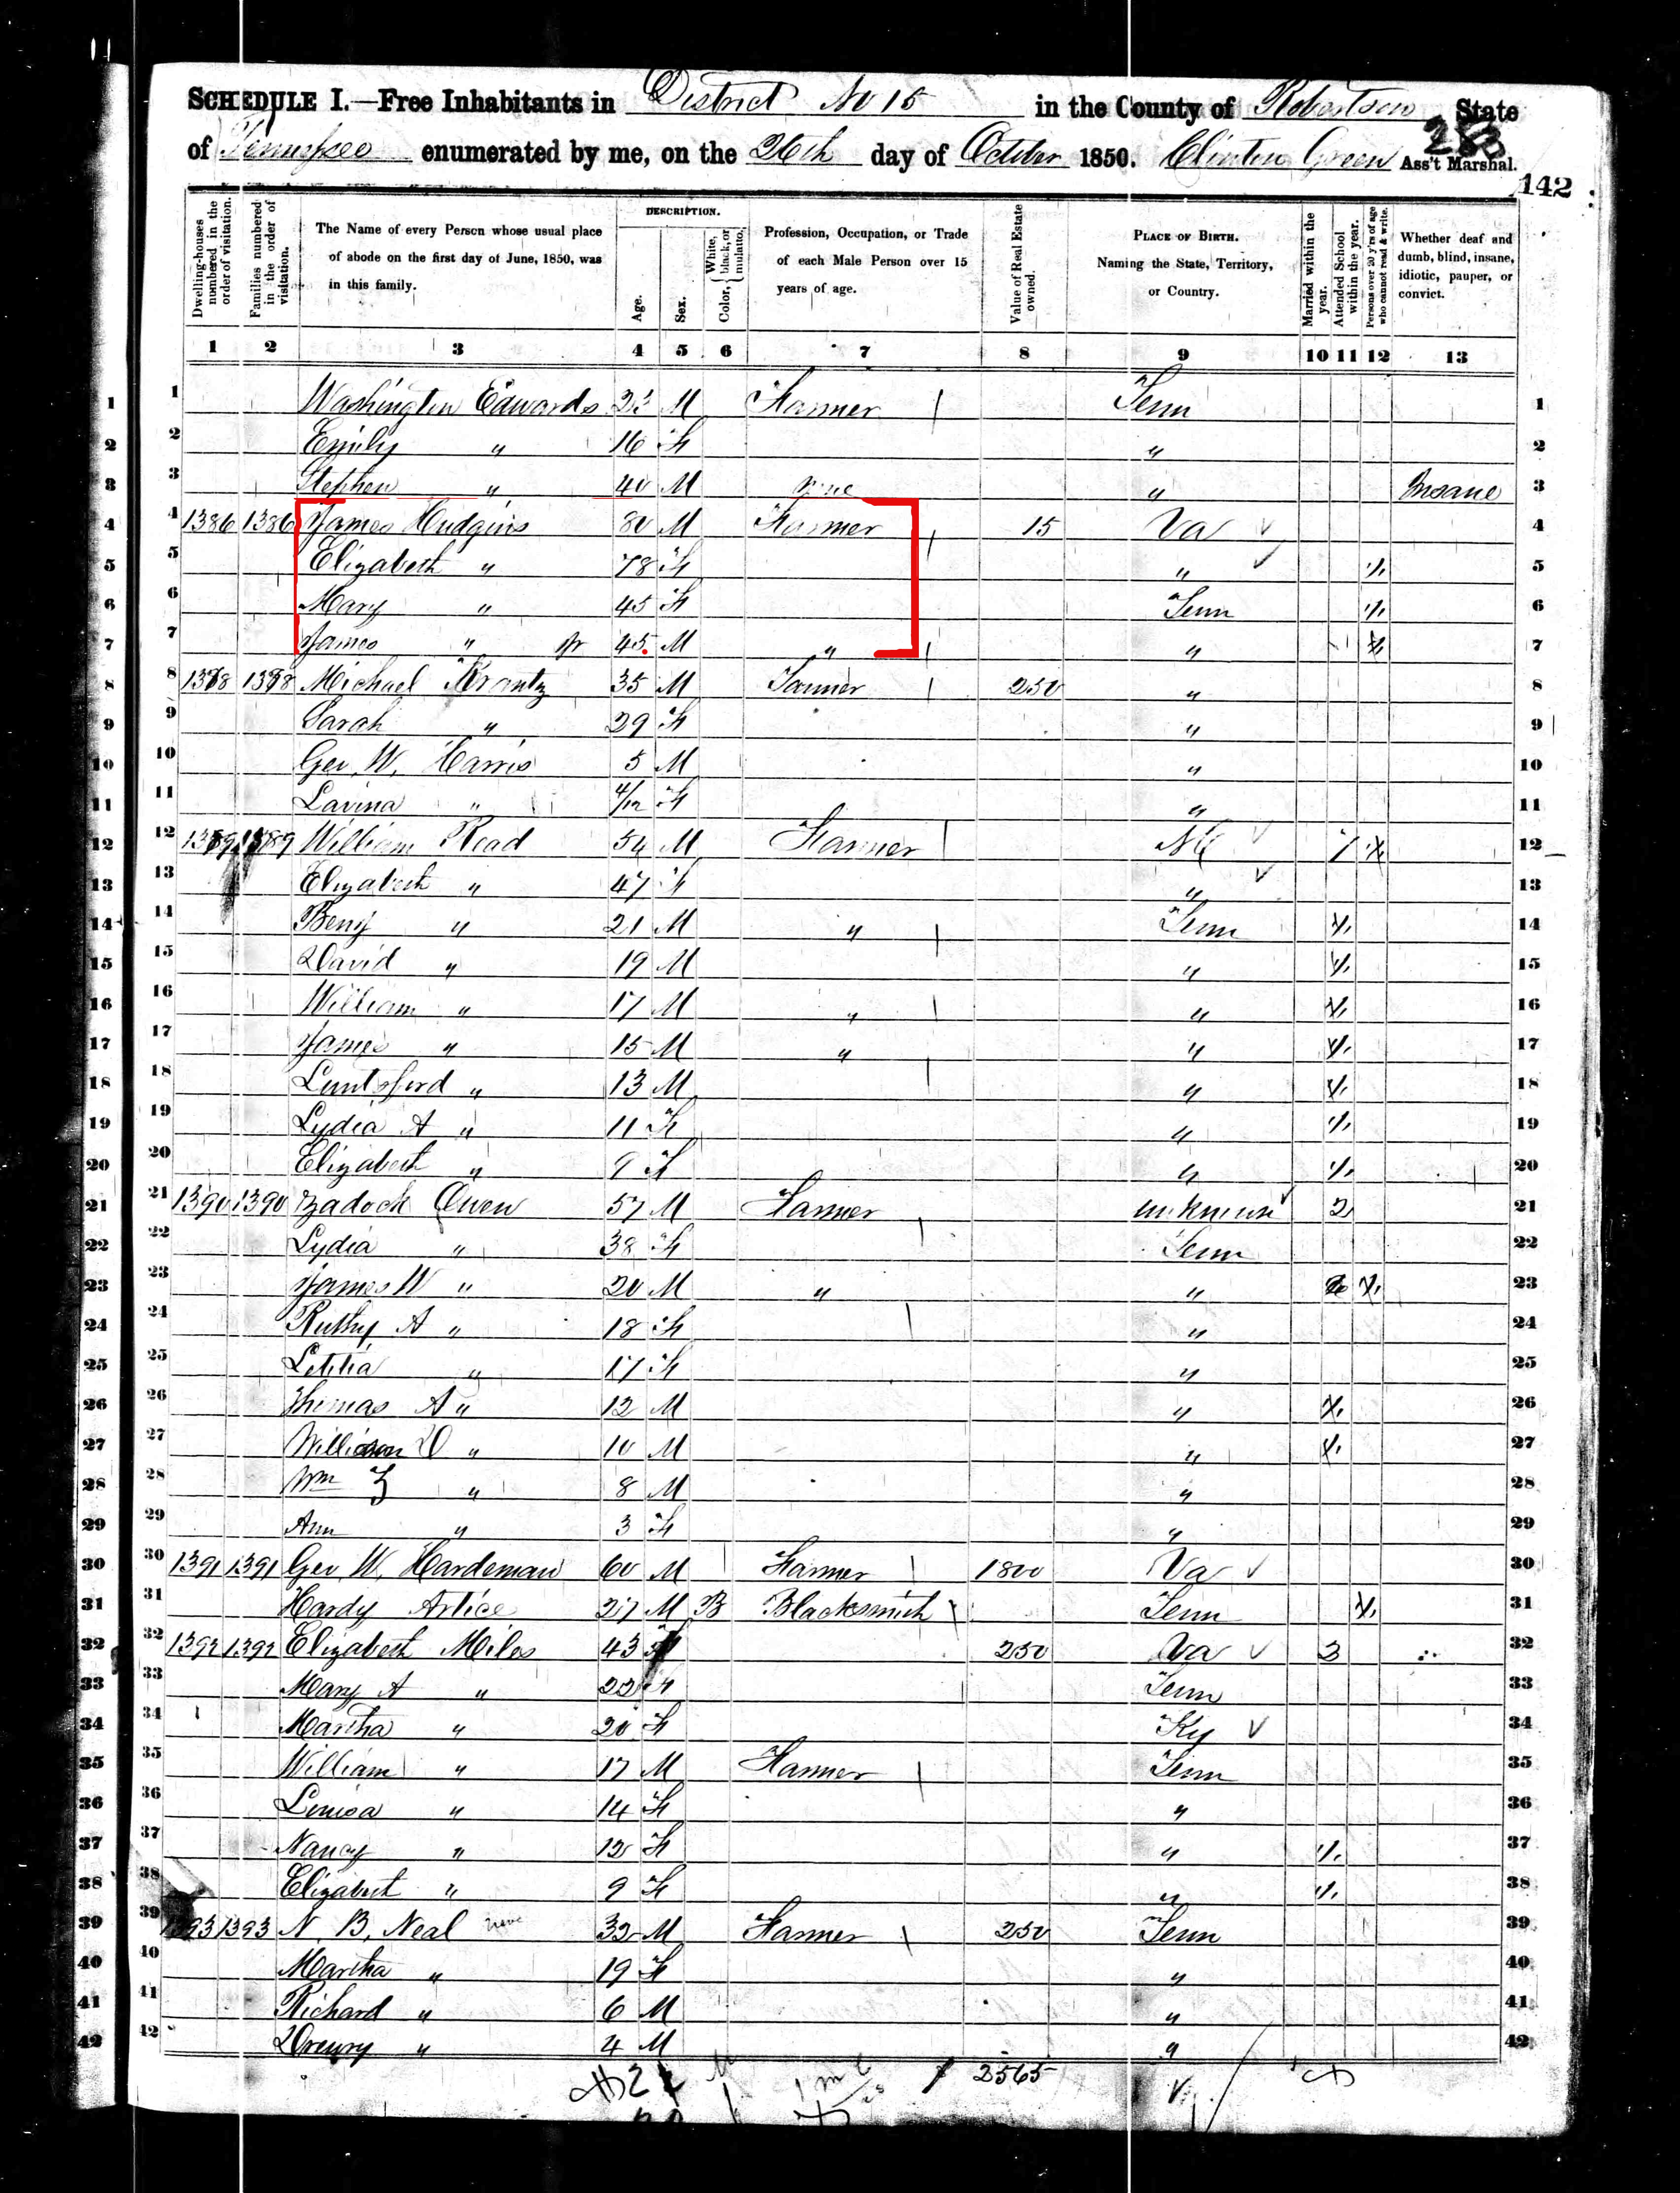 SCHEDULE I.—Free Inhabitants in District No 15 in the County of Robertson State
of Tennessee enumerated by me, on the 26th day of October 1850. Clinton Green Ass't Marshal.
142
Dwelling-houses numbered in the order of visitation.
Families numbered in the order of visitation.
The Name of every Person whose usual place of abode on the first day of June, 1850, was in this family.
DESCRIPTION.
Age.
Sex.
Color, White, black, or mulatto.
Profession, Occupation, or Trade of each Male Person over 15 years of age.
Value of Real Estate owned.
PLACE OF BIRTH. Naming the State, Territory, or Country.
Married within the year.
Attended School within the year.
Persons over 20 y'rs of age who cannot read & write.
Whether deaf and dumb, blind, insane, idiotic, pauper, or convict.
1 2 3 4 5 6 7 8 9 10 11 12 13
1 Washington Edwards 23 M Farmer Tenn 1
2 Emily " 16 F " 2
3 Stephen " 40 M none " Insane 3
4 1386 1386 James Hudgins 80 M Farmer 15 Va 4
5 Elizabeth " 78 F " 5
6 Mary " 45 F Tenn 6
7 James " Jr 45 M " " 7
8 1388 1388 Michael Krantz 35 M Farmer 250 " 8
9 Sarah " 29 F " 9
10 Geo. W. Harris 5 M " 10
11 Lavina " 4/12 F " 11
12 1389 1389 William Read 54 M Farmer NC 12
13 Elizabeth " 47 F " 13
14 Benj " 21 M " Tenn 14
15 David " 19 M " 15
16 William " 17 M " " 16
17 James " 15 M " " 17
18 Luntsford " 13 M " 18
19 Lydia A " 11 F " 19
20 Elizabeth " 9 F " 20
21 1390 1390 Zadock Owen 57 M Farmer unknown 2 21
22 Lydia " 38 F Tenn 22
23 James W " 20 M " " 23
24 Ruthy A " 18 F " 24
25 Letitia " 17 F " 25
26 Thomas A " 12 M " 26
27 William D " 10 M " 27
28 Wm Z " 8 M " 28
29 Ann " 3 F " 29
30 1391 1391 Geo W. Hardeman 60 M Farmer 1800 Va 30
31 Hardy Artice 27 M B Blacksmith Tenn 31
32 1392 1392 Elizabeth Miles 43 F 250 Va 3 32
33 Mary A " 22 F Tenn 33
34 Martha " 20 F Ky 34
35 William " 17 M Farmer Tenn 35
36 Louisa " 14 F " 36
37 Nancy " 12 F " 37
38 Elizabeth " 9 F " 38
39 1393 1393 N. B. Neal 32 M Farmer 250 Tenn 39
40 Martha " 19 F " 40
41 Richard " 6 M " 41
42 Drewry " 4 M " 42
2565